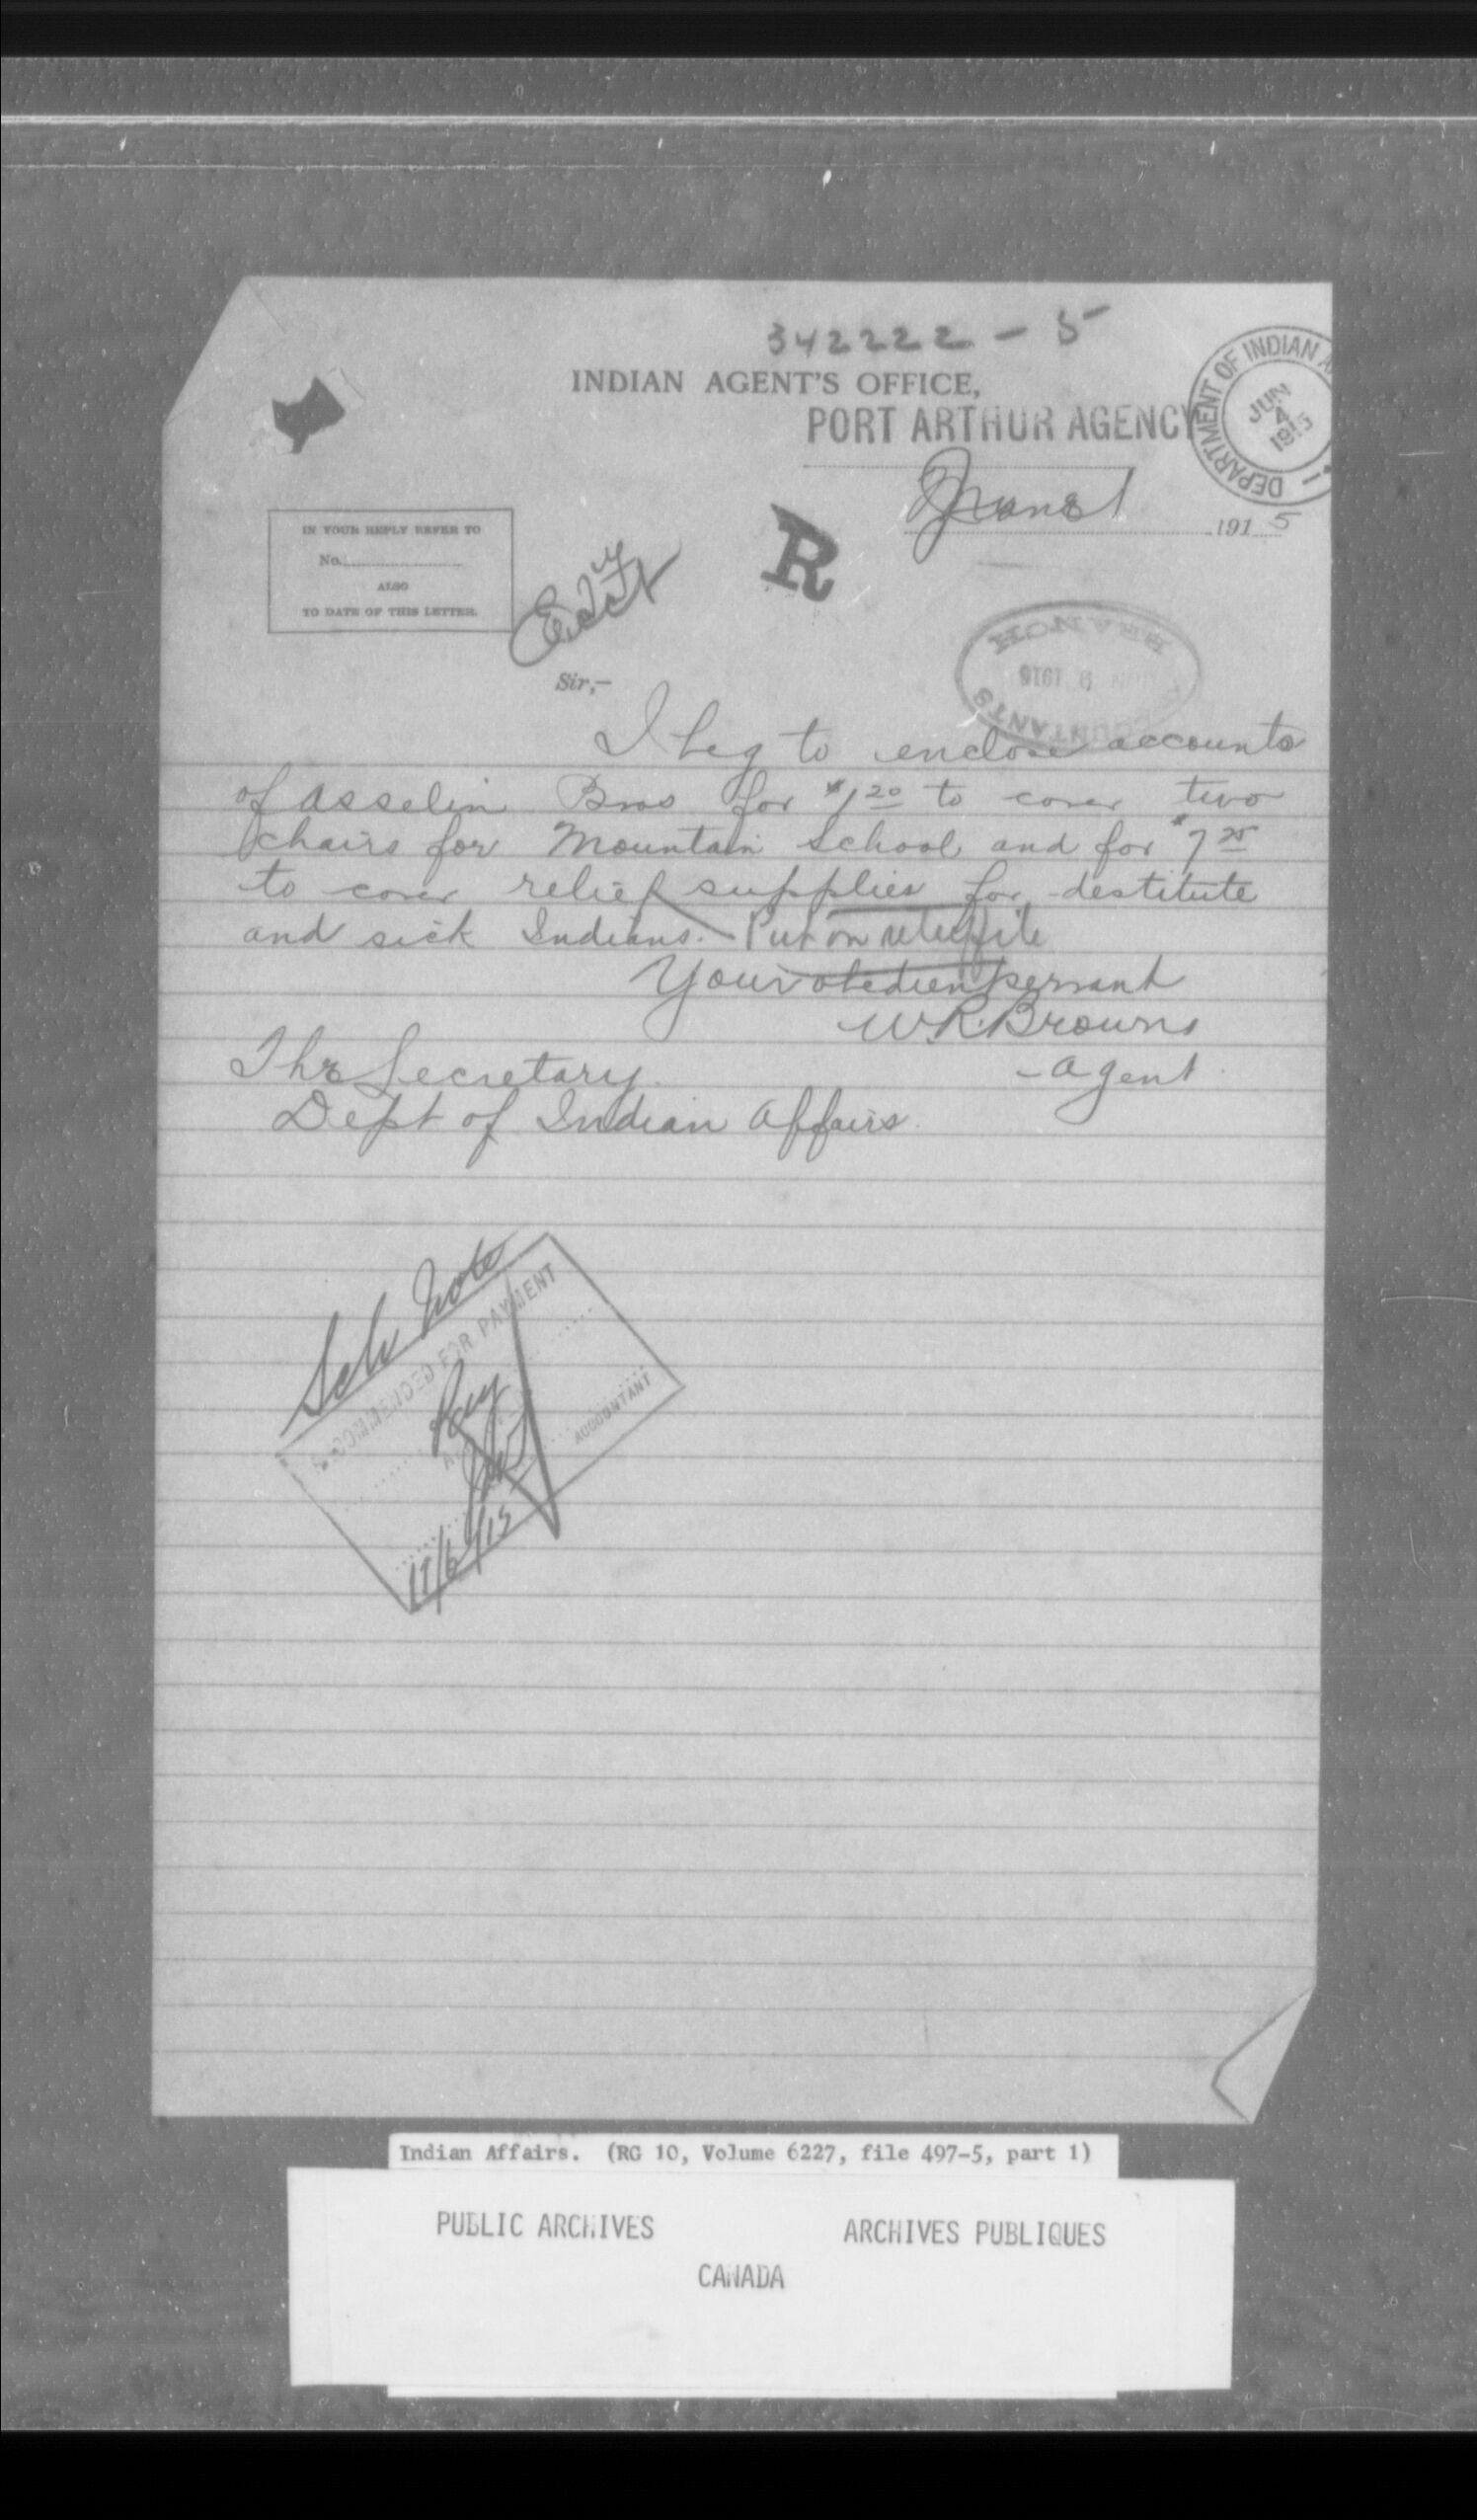 342222 - 5
INDIAN AGENT'S OFFICE,
PORT ARTHUR AGENCY
DEPARTMENT OF INDIAN A
JUN
4
1915
June 1 1915
IN YOUR REPLY REFER TO
No.
ALSO
TO DATE OF THIS LETTER.
R
BRANCH
COUNTANTS
Sir,-
I beg to enclose accounts
of Asselin Bros for $1 20 to cover two
chairs for Mountain School and for $7 25
to cover relief supplies for destitute
and sick Indians. Put on relief file
Your obedient servant
W.R. Brown
- Agent
The Secretary.
Dept of Indian Affairs.
Note
COMMENDED FOR PAYMENT
Pay
ACCOUNTANT
/6/15
Indian Affairs. (RG 10, Volume 6227, file 497-5, part 1)
PUBLIC ARCHIVES ARCHIVES PUBLIQUES
CANADA